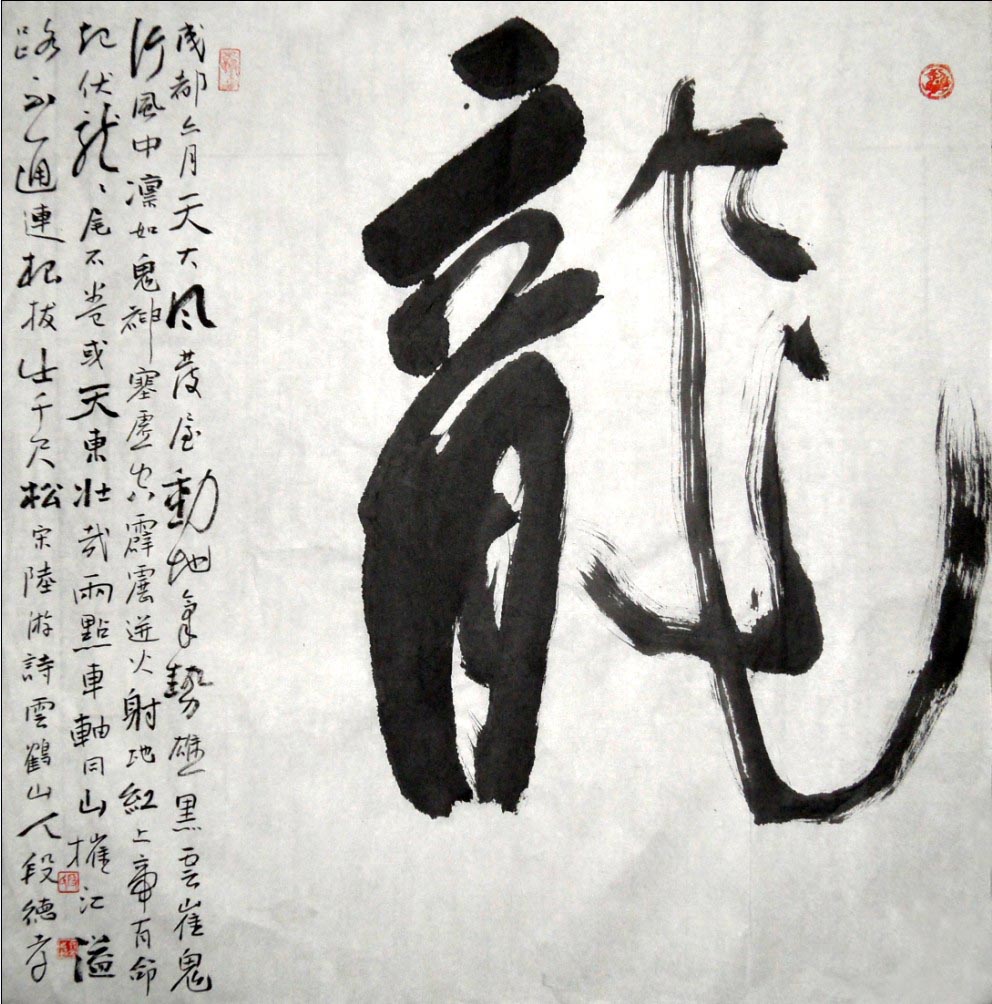 龍
成都六月天大风發屋動地氣勢雄黑雲崔鬼
行風中凛如鬼神塞虚空霹震迸火射地紅上帝有命
起伏龍〻尾不卷或天東壯哉雨點車軸同山摧江溢
路不通連根拔出千尺松宋陸游詩雲鶴山人段德